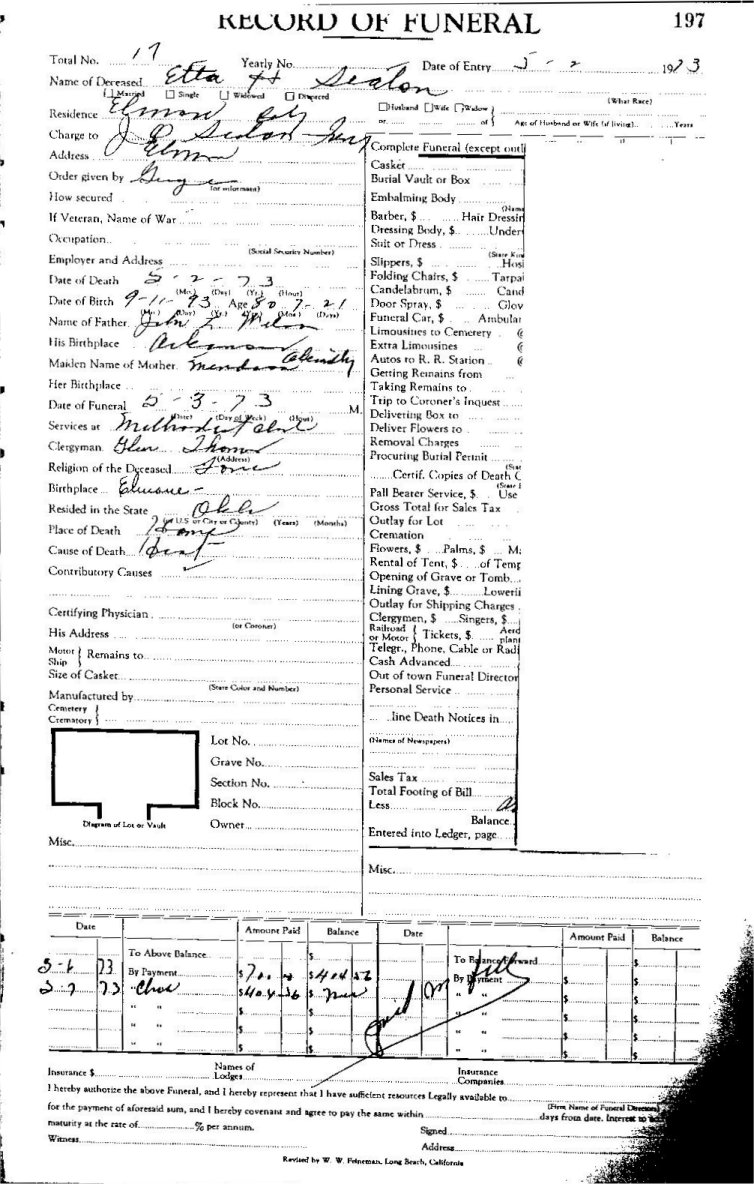 RECORD OF FUNERAL 197
Total No. 17 Yearly No. Date of Entry 5 - 2 1973
Name of Deceased Etta H
Married Single Widowed Divorced
Husband Wife Widow (What Race)
Residence
or of Age of Husband or Wife (if living) Years
Charge to J
Address
Order given by
(or informant)
How secured
If Veteran, Name of War
Occupation
(Social Security Number)
Employer and Address
Date of Death 5 - 2 - 73
(Mo.) (Day) (Yr.) (Hour)
Date of Birth 9-11-93 Age 80 7 - 21
(Mo.) (Day) (Yr.) (Yrs.) (Mos.) (Days)
Name of Father John L Wilson
His Birthplace Arkansas
Maiden Name of Mother
Her Birthplace
Date of Funeral 5 - 3 - 73 M.
(Date) (Day of Week) (Hour)
Services at Methodist
Clergyman Glen Thomas
(Address)
Religion of the Deceased
Birthplace
Resided in the State Okla
(or U.S. or City or County) (Years) (Months)
Place of Death Home
Cause of Death Heart
Contributory Causes
Certifying Physician
(or Coroner)
His Address
Motor Ship } Remains to
Size of Casket
(State Color and Number)
Manufactured by
Cemetery
Crematory }
Lot No.
Grave No.
Section No.
Block No.
Diagram of Lot or Vault Owner
Misc.
Complete Funeral (except outl
Casket
Burial Vault or Box
Embalming Body
(Name
Barber, $ Hair Dressin
Dressing Body, $ Under
Suit or Dress
(State Kin
Slippers, $ Hosi
Folding Chairs, $ Tarpa
Candelabrum, $ Cand
Door Spray, $ Glov
Funeral Car, $ Ambular
Limousines to Cemetery
Extra Limousines
Autos to R. R. Station
Getting Remains from
Taking Remains to
Trip to Coroner's Inquest
Delivering Box to
Deliver Flowers to
Removal Charges
Procuring Burial Permit
(Stat
Certif. Copies of Death C
(State
Pall Bearer Service, $ Use
Gross Total for Sales Tax
Outlay for Lot
Cremation
Flowers, $ Palms, $ M
Rental of Tent, $ of Temp
Opening of Grave or Tomb
Lining Grave, $ Lowerin
Outlay for Shipping Charges
Clergymen, $ Singers, $
Railroad or Motor { Tickets, $ Aero plan
Telegr., Phone, Cable or Radi
Cash Advanced
Out of town Funeral Director
Personal Service
line Death Notices in
(Names of Newspapers)
Sales Tax
Total Footing of Bill
Less
Balance
Entered into Ledger, page
Misc.
Date Amount Paid Balance Date Amount Paid Balance
To Above Balance $ To Balance Forward $
73 By Payment $ $404 56 By Payment $ $
73 " $404 56 $ " " $ $
Paid in full
Insurance $ Names of Lodges Insurance Companies
I hereby authorize the above Funeral, and I hereby represent that I have sufficient resources Legally available to
(Firm Name of Funeral Directors)
for the payment of aforesaid sum, and I hereby covenant and agree to pay the same within days from date. Interest to
maturity at the rate of % per annum. Signed
Witness Address
Revised by W. W. Feineman, Long Beach, California